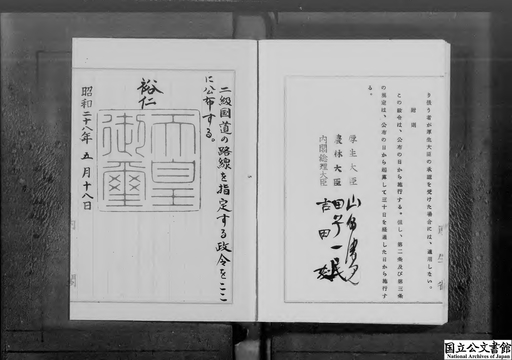 り扱う者が厚生大臣の承認を受けた場合には、適用しない。
附則
この政令は、公布の日から施行する。但し、第二条及び第三条
の規定は、公布の日から起算して三十日を経過した日から施行す
る。
厚生大臣
農林大臣
内閣総理大臣
吉田茂
二級国道の路線を指定する政令をここ
に公布する。
裕仁
天皇
御璽
昭和二十八年五月十八日
国立公文書館
National Archives of Japan